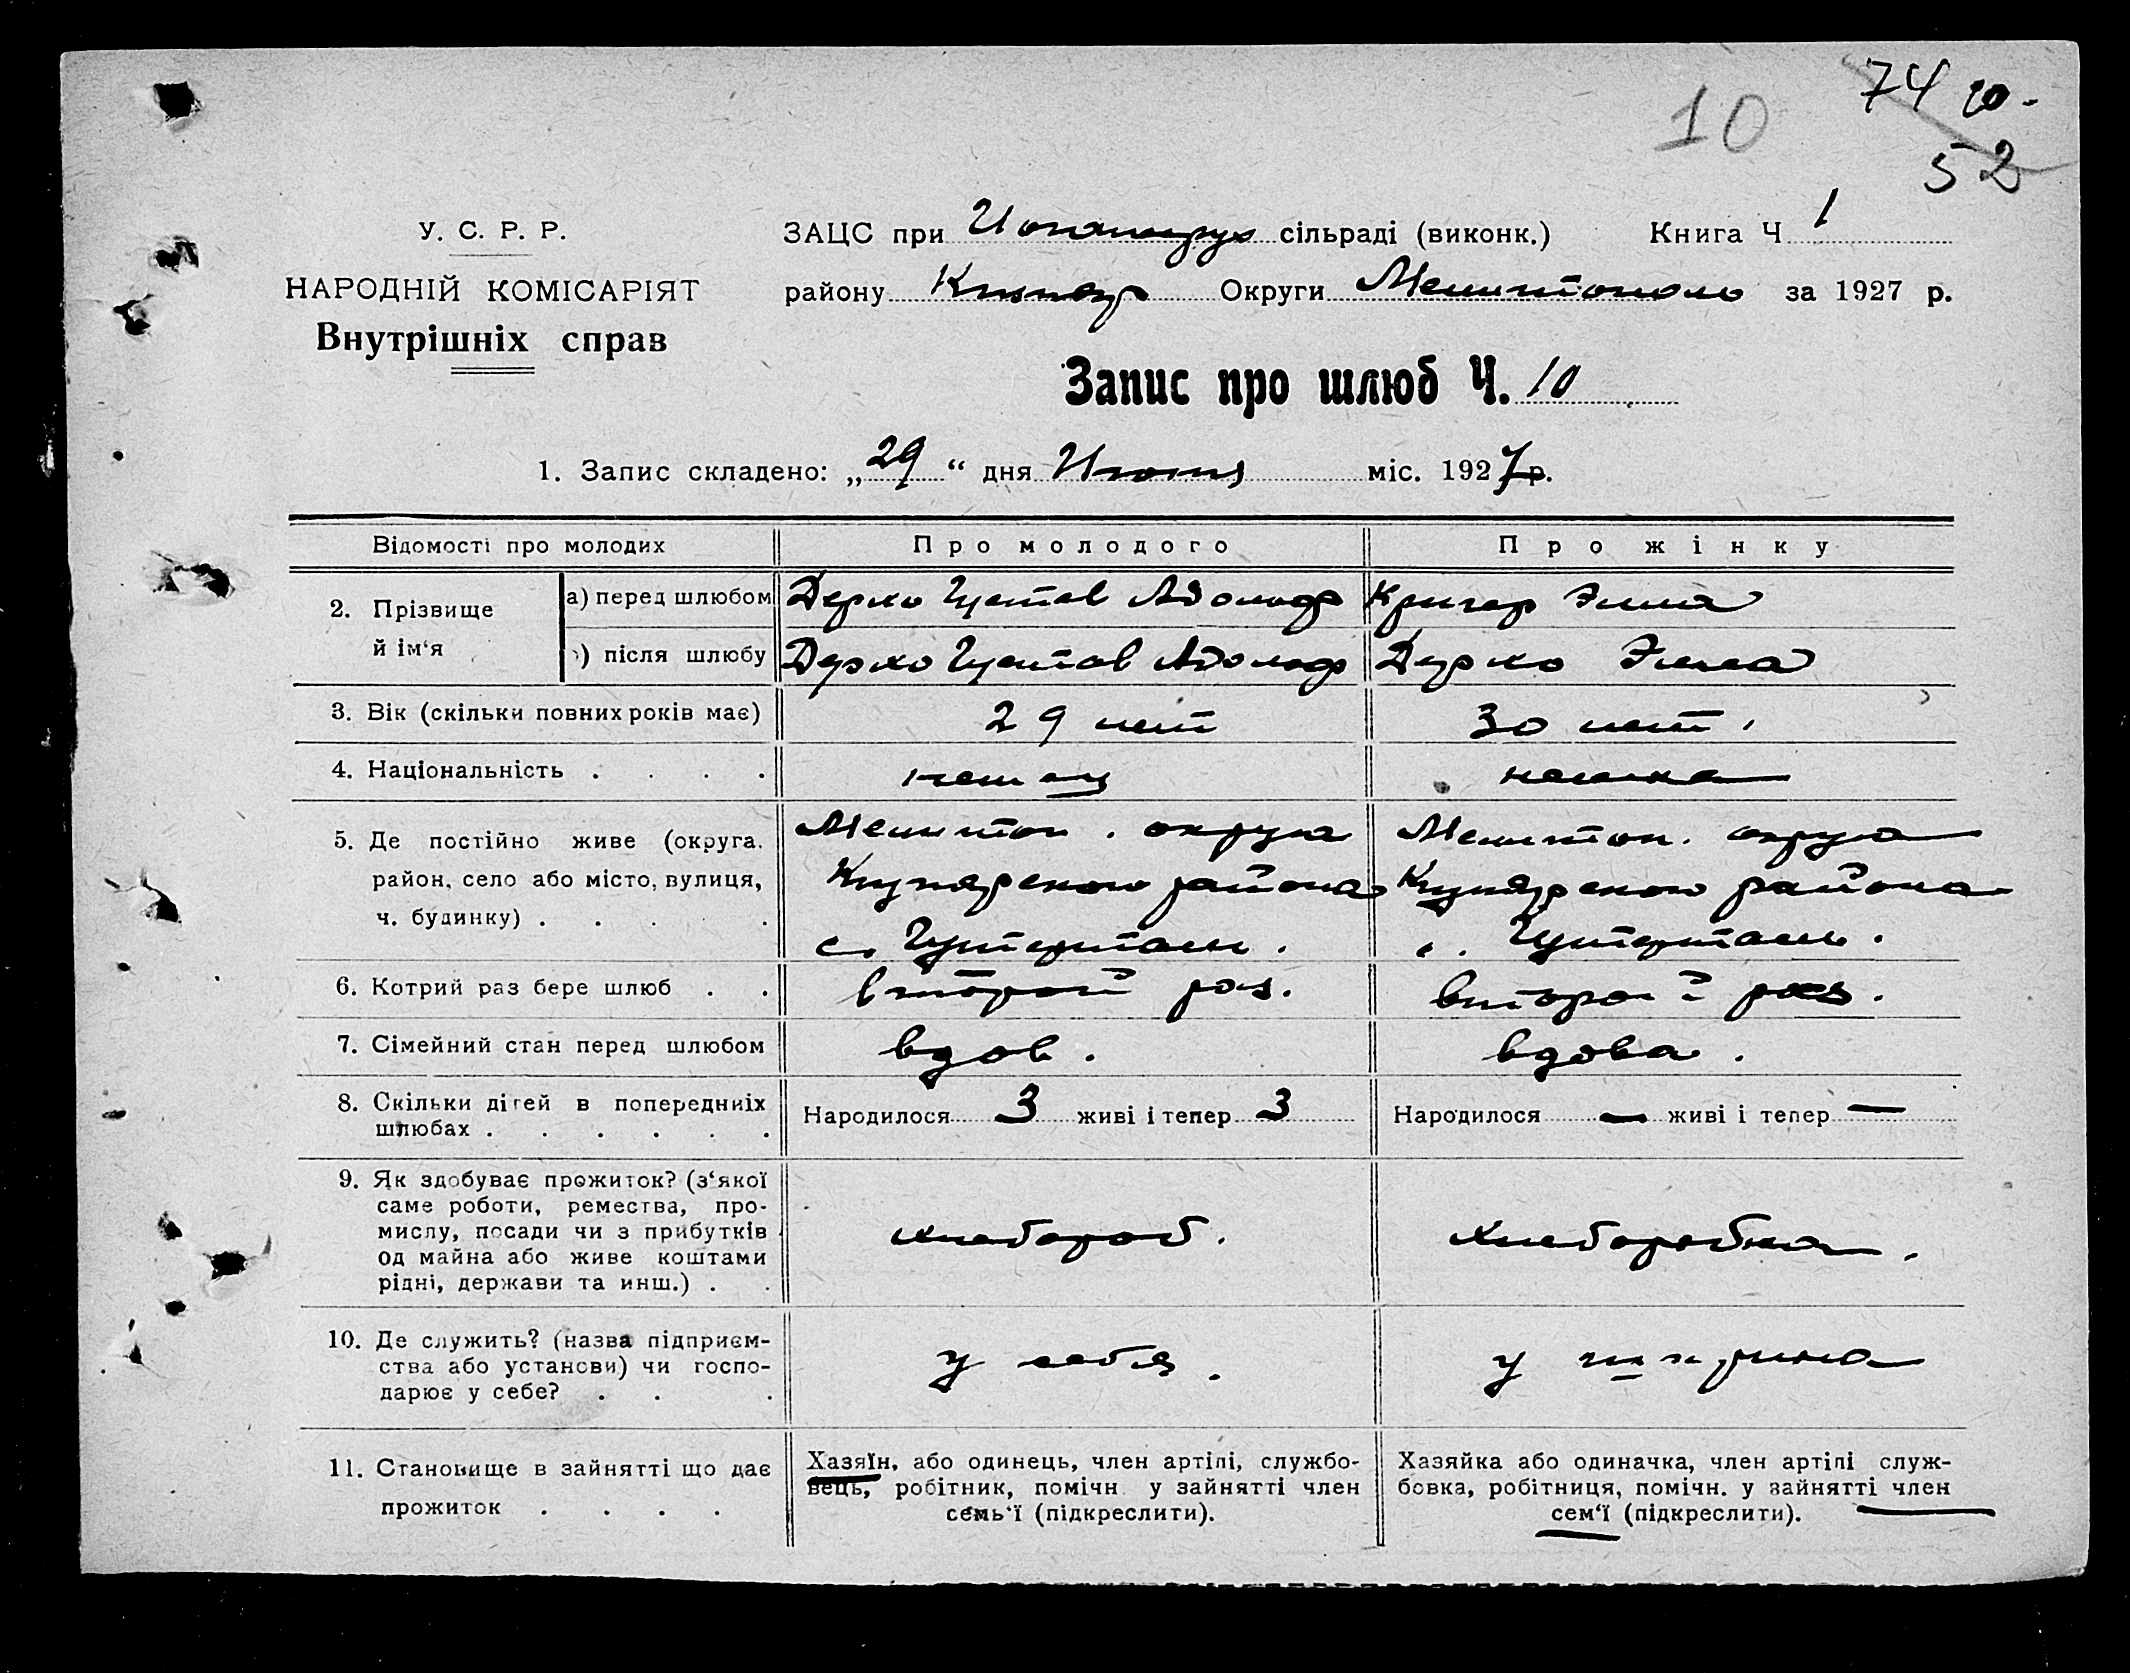 74 10.
10
52
У. С. Р. Р.
НАРОДНІЙ КОМІСАРІЯТ
Внутрішніх справ
ЗАЦС при сільраді (виконк.) Книга Ч 1
району Округи Мелитополь за 1927 р.
Запис про шлюб Ч. 10
1. Запис складено: „29“ дня міс. 1927 р.
Відомості про молодих Про молодого Про жінку
2. Прізвище й ім‘я
а) перед шлюбом Густав Адольф Кригер Эмма
б) після шлюбу Густав Адольф Эмма
3. Вік (скільки повних років має) 29 лет 30 лет.
4. Національність . . . . немец немка
5. Де постійно живе (округа, Мелитоп. округа Мелитоп. округа
район, село або місто, вулиця, района района
ч. будинку) . . . . с. Гутерталь. с. Гутерталь.
6. Котрий раз бере шлюб . . второй раз. второй раз.
7. Сімейний стан перед шлюбом вдов. вдова.
8. Скільки дітей в попередниіх Народилося 3 живі і тепер 3 Народилося — живі і тепер —
шлюбах . . . . . .
9. Як здобуває прожиток? (з‘якої
саме роботи, ремества, про-
мислу, посади чи з прибутків хлебороб. хлеборобка.
од майна або живе коштами
рідні, держави та инш.) . .
10. Де служить? (назва підприєм-
ства або установи) чи госпо- у себя. у
дарює у себе? . . .
11. Становище в зайнятті що дає Хазяїн, або одинець, член артілі, службо- Хазяйка або одиначка, член артілі служ-
прожиток . . . . вець, робітник, помічн. у зайнятті член бовка, робітниця, помічн. у зайнятті член
семь‘ї (підкреслити). сем‘ї (підкреслити).